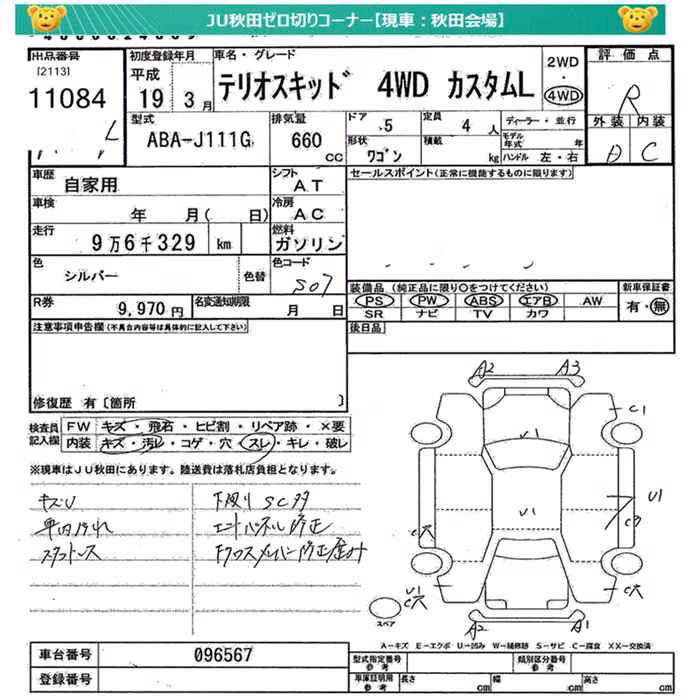 JU秋田ゼロ切りコーナー【現車：秋田会場】
出品番号 初度登録年月 車名・グレード 2WD 評価点
[2113] 平成 ・
11084 19 3月 テリオスキッド 4WD カスタムL 4WD R
L 型式 排気量 ドア 5 定員 4人 ディーラー・並行 外装 内装
ABA-J111G 660cc 形状 ワゴン 積載 kg モデル年式 年 ハンドル 左・右 D C
車歴 自家用 シフト AT セールスポイント(正常に機能するものに限ります)
車検 年 月( 日) 冷房 AC
走行 9万6千329 km 燃料 ガソリン
色 シルバー 色替 色コード S07
装備品 (純正品に限り○をつけてください) 新車保証書
R券 9,970円 名変通知期限 月 日 PS PW ABS エアB AW 有・無
SR ナビ TV カワ
注意事項申告欄(不具合内容等は具体的に記入して下さい) 後日品
修復歴 有〔箇所 〕
A2 A3
検査員記入欄 FW キズ・飛石・ヒビ割・リペア跡・×要
内装 キズ・汚レ・コゲ・穴・スレ・キレ・破レ
C1
U1
※現車はJU秋田にあります。陸送費は落札店負担となります。
キズU 下廻り SC多
車内汚れ エンドパネル修正
U1
U1
C穴
U1
C穴
C穴
スペア
A2 A1
A－キズ E－エクボ U－凹み W－補修跡 S－サビ C－腐食 XX－交換済
車台番号 096567 型式指定番号 参考 類別区分番号 参考
登録番号 車庫証明用 参考 長さ cm 幅 cm 高さ cm